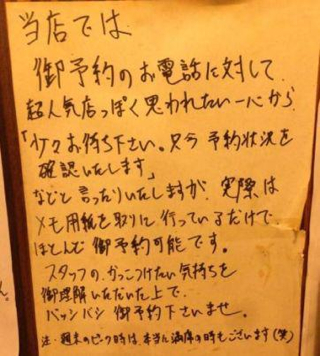 当店では
御予約のお電話に対して
超人気店っぽく思われたい一心から
「少々お待ち下さい。只今予約状況を
確認いたします」
などと言ったりいたしますが、実際は
メモ用紙を取りに行っているだけで
ほとんど御予約可能です。
スタッフの、かっこつけたい気持ちを
御理解いただいた上で、
バッンバン御予約下さいませ。
注・週末のピーク時は本当に満席の時もございます(笑)